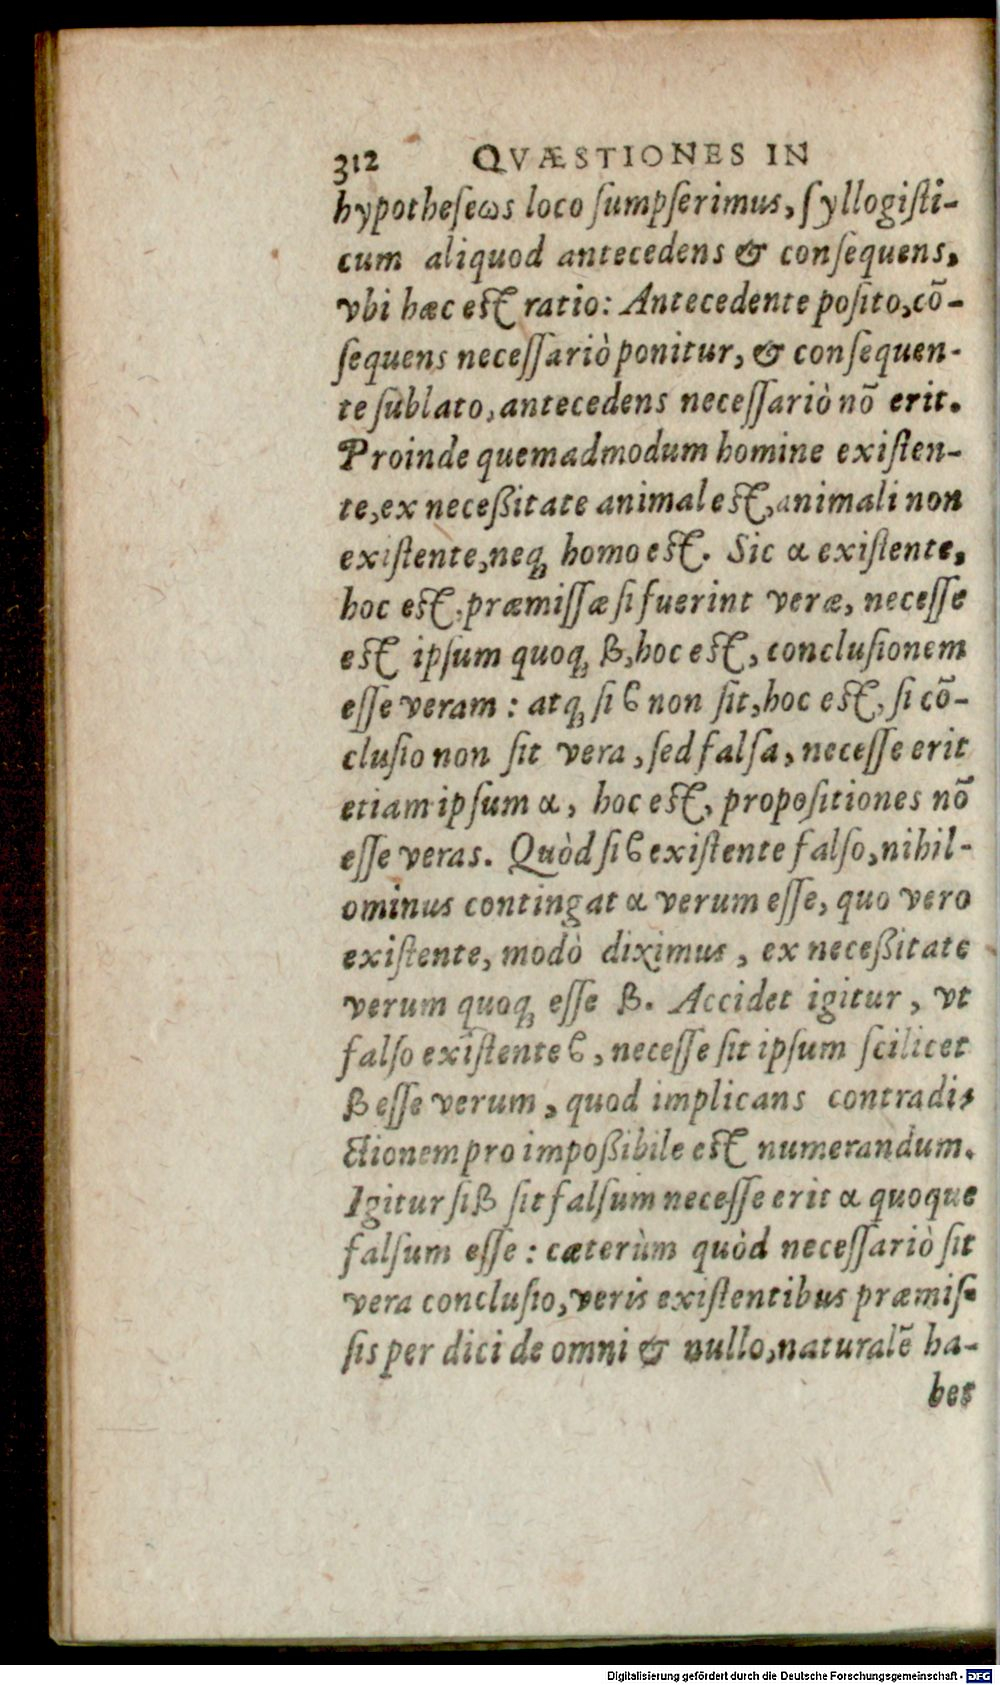 312 QVÆSTIONES IN
hypotheseωs loco ſumpſerimus, ſyllogiſti-
cum aliquod antecedens & conſequens,
vbi hæc eſt ratio: Antecedente poſito, cō-
ſequens neceſſariò ponitur, & conſequen-
te ſublato, antecedens neceſſariò nō erit.
Proinde quemadmodum homine exiſten-
te, ex neceßitate animal eſt, animali non
exiſtente, neq; homo eſt. Sic α exiſtente,
hoc eſt, præmiſſæ ſi fuerint veræ, neceſſe
eſt ipſum quoq; β, hoc eſt, concluſionem
eſſe veram : atq; ſi ϐ non ſit, hoc eſt, ſi cō-
cluſio non ſit vera, ſed falſa, neceſſe erit
etiam ipſum α, hoc eſt, propoſitiones nō
eſſe veras. Quòd ſi ϐ exiſtente falſo, nihil-
ominus contingat α verum eſſe, quo vero
exiſtente, modò diximus, ex neceßitate
verum quoq; eſſe β. Accidet igitur, vt
falſo exiſtente ϐ, neceſſe ſit ipſum ſcilicet
β eſſe verum, quod implicans contradi-
ctionem pro impoßibile eſt numerandum.
Igitur ſi β ſit falſum neceſſe erit α quoque
falſum eſſe : cæterùm quòd neceſſariò ſit
vera concluſio, veris exiſtentibus præmiſ-
ſis per dici de omni & nullo, naturalē ha-
bet
Digitalisierung gefördert durch die Deutsche Forschungsgemeinschaft - DFG